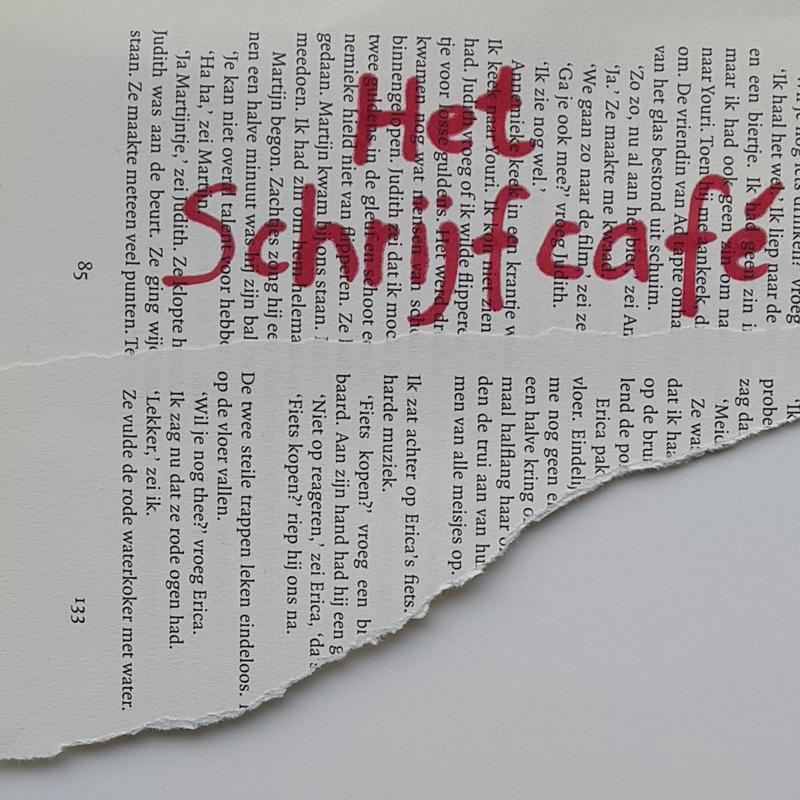 Het
Schrijfcafè
je nog iets drinken?' vroeg
'Ik haal het wel.' Ik liep naar de
en een biertje. Ik had geen zin i
maar ik had ook geen zin om na
naar Youri. Toen hij me aankeek d
om. De vriendin van Ad tapte
van het glas bestond uit schuim.
'Zo zo, nu al aan het bier,' zei An
'Ja.' Ze maakte me kwaad.
'We gaan zo naar de film,' zei ze
'Ga je ook mee?' vroeg Judith.
'Ik zie nog wel.'
Annemieke keek in een krantje w
Ik keek naar Youri. Ik kon niet zien
had. Judith vroeg of ik wilde flippere
tje voor losse guldens. Het werd dr
kwamen nog wat mensen van scho
binnengelopen. Judith zei dat ik moc
twee guldens in de gleuf en schoot ee
nemieke hield niet van flipperen. Ze
gedaan. Martijn kwam bij ons staan.
meedoen. Ik had zin om hem helema
Martijn begon. Zachtjes zong hij ee
nen een halve minuut was hij zijn bal
'Je kan niet overal talent voor hebbe
'Ha ha,' zei Martijn.
'Ja Martijntje,' zei Judith. Ze klopte h
Judith was aan de beurt. Ze ging wijd
staan. Ze maakte meteen veel punten. Te
85
'Ik
probe
zag da
'Meid
Ze wa
dat ik haa
op de brui
lend de po
Erica pak
vloer. Eindelij
me nog geen e
een halve kring o
maal halflang haar
den de trui aan van hu
men van alle meisjes op.
Ik zat achter op Erica's fiets.
harde muziek.
'Fiets kopen?' vroeg een
baard. Aan zijn hand had hij een g
'Niet op reageren,' zei Erica, 'da
'Fiets kopen?' riep hij ons na.
De twee steile trappen leken eindeloos.
op de vloer vallen.
'Wil je nog thee?' vroeg Erica.
Ik zag nu dat ze rode ogen had.
'Lekker,' zei ik.
Ze vulde de rode waterkoker met water.
133